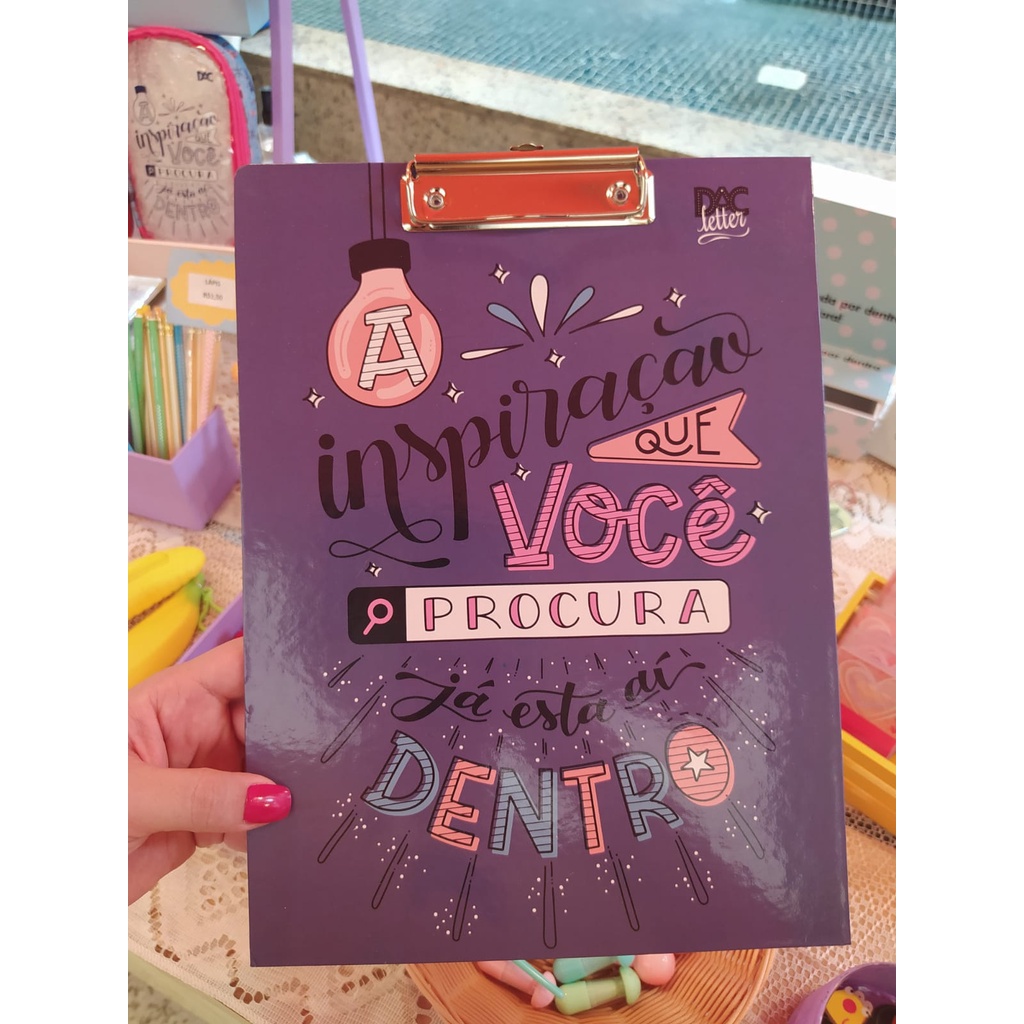 DAC
A
inspiração
QUE
VOCÊ
PROCURA
já está aí
DENTRO
LÁPIS
DAC
letter
A
inspiração
QUE
VOCÊ
PROCURA
já esta aí
DENTRO
por dentro